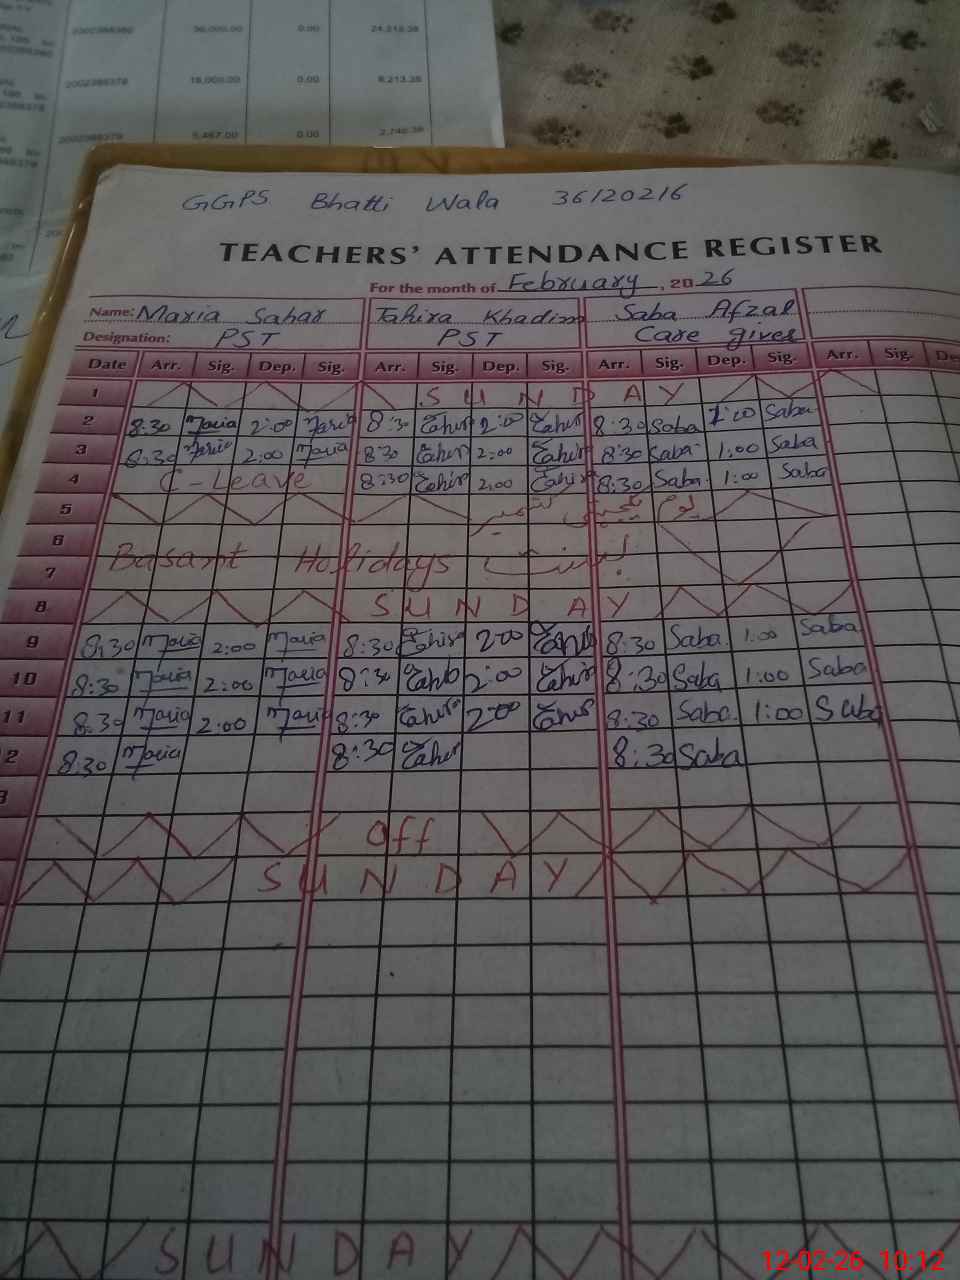 2002386380 36,000.00 0.00 24,213.38
2002386379 16,000.00 0.00 8,213.38
2002386379 5,467.00 0.00 2,746.38
GGPS Bhatti Wala 36120216
TEACHERS' ATTENDANCE REGISTER
For the month of February, 2026
Name: Maria Sahar Tahira Khadim Saba Afzal
Designation: PST PST Care giver
Date Arr. Sig. Dep. Sig. Arr. Sig. Dep. Sig. Arr. Sig. Dep. Sig. Arr. Sig. De
1 SUNDAY
2 8:30 Maria 2:00 Maria 8:30 Tahir 2:00 Tahir 8:30 Saba 1:00 Saba
3 8:30 Maria 2:00 Maria 8:30 Tahir 2:00 Tahir 8:30 Saba 1:00 Saba
4 C-Leave 8:30 Tahir 2:00 Tahir 8:30 Saba 1:00 Saba
5 یوم یکجہتی کشمیر
6
7 Basant Holidays بسنت
8 SUNDAY
9 8:30 Maria 2:00 Maria 8:30 Tahir 2:00 Tahir 8:30 Saba 1:00 Saba
10 8:30 Maria 2:00 Maria 8:30 Tahir 2:00 Tahir 8:30 Saba 1:00 Saba
11 8:30 Maria 2:00 Maria 8:30 Tahir 2:00 Tahir 8:30 Saba 1:00 Saba
2 8:30 Maria 8:30 Tahir 8:30 Saba
3
Off
SUNDAY
SUNDAY
12-02-26 10:12